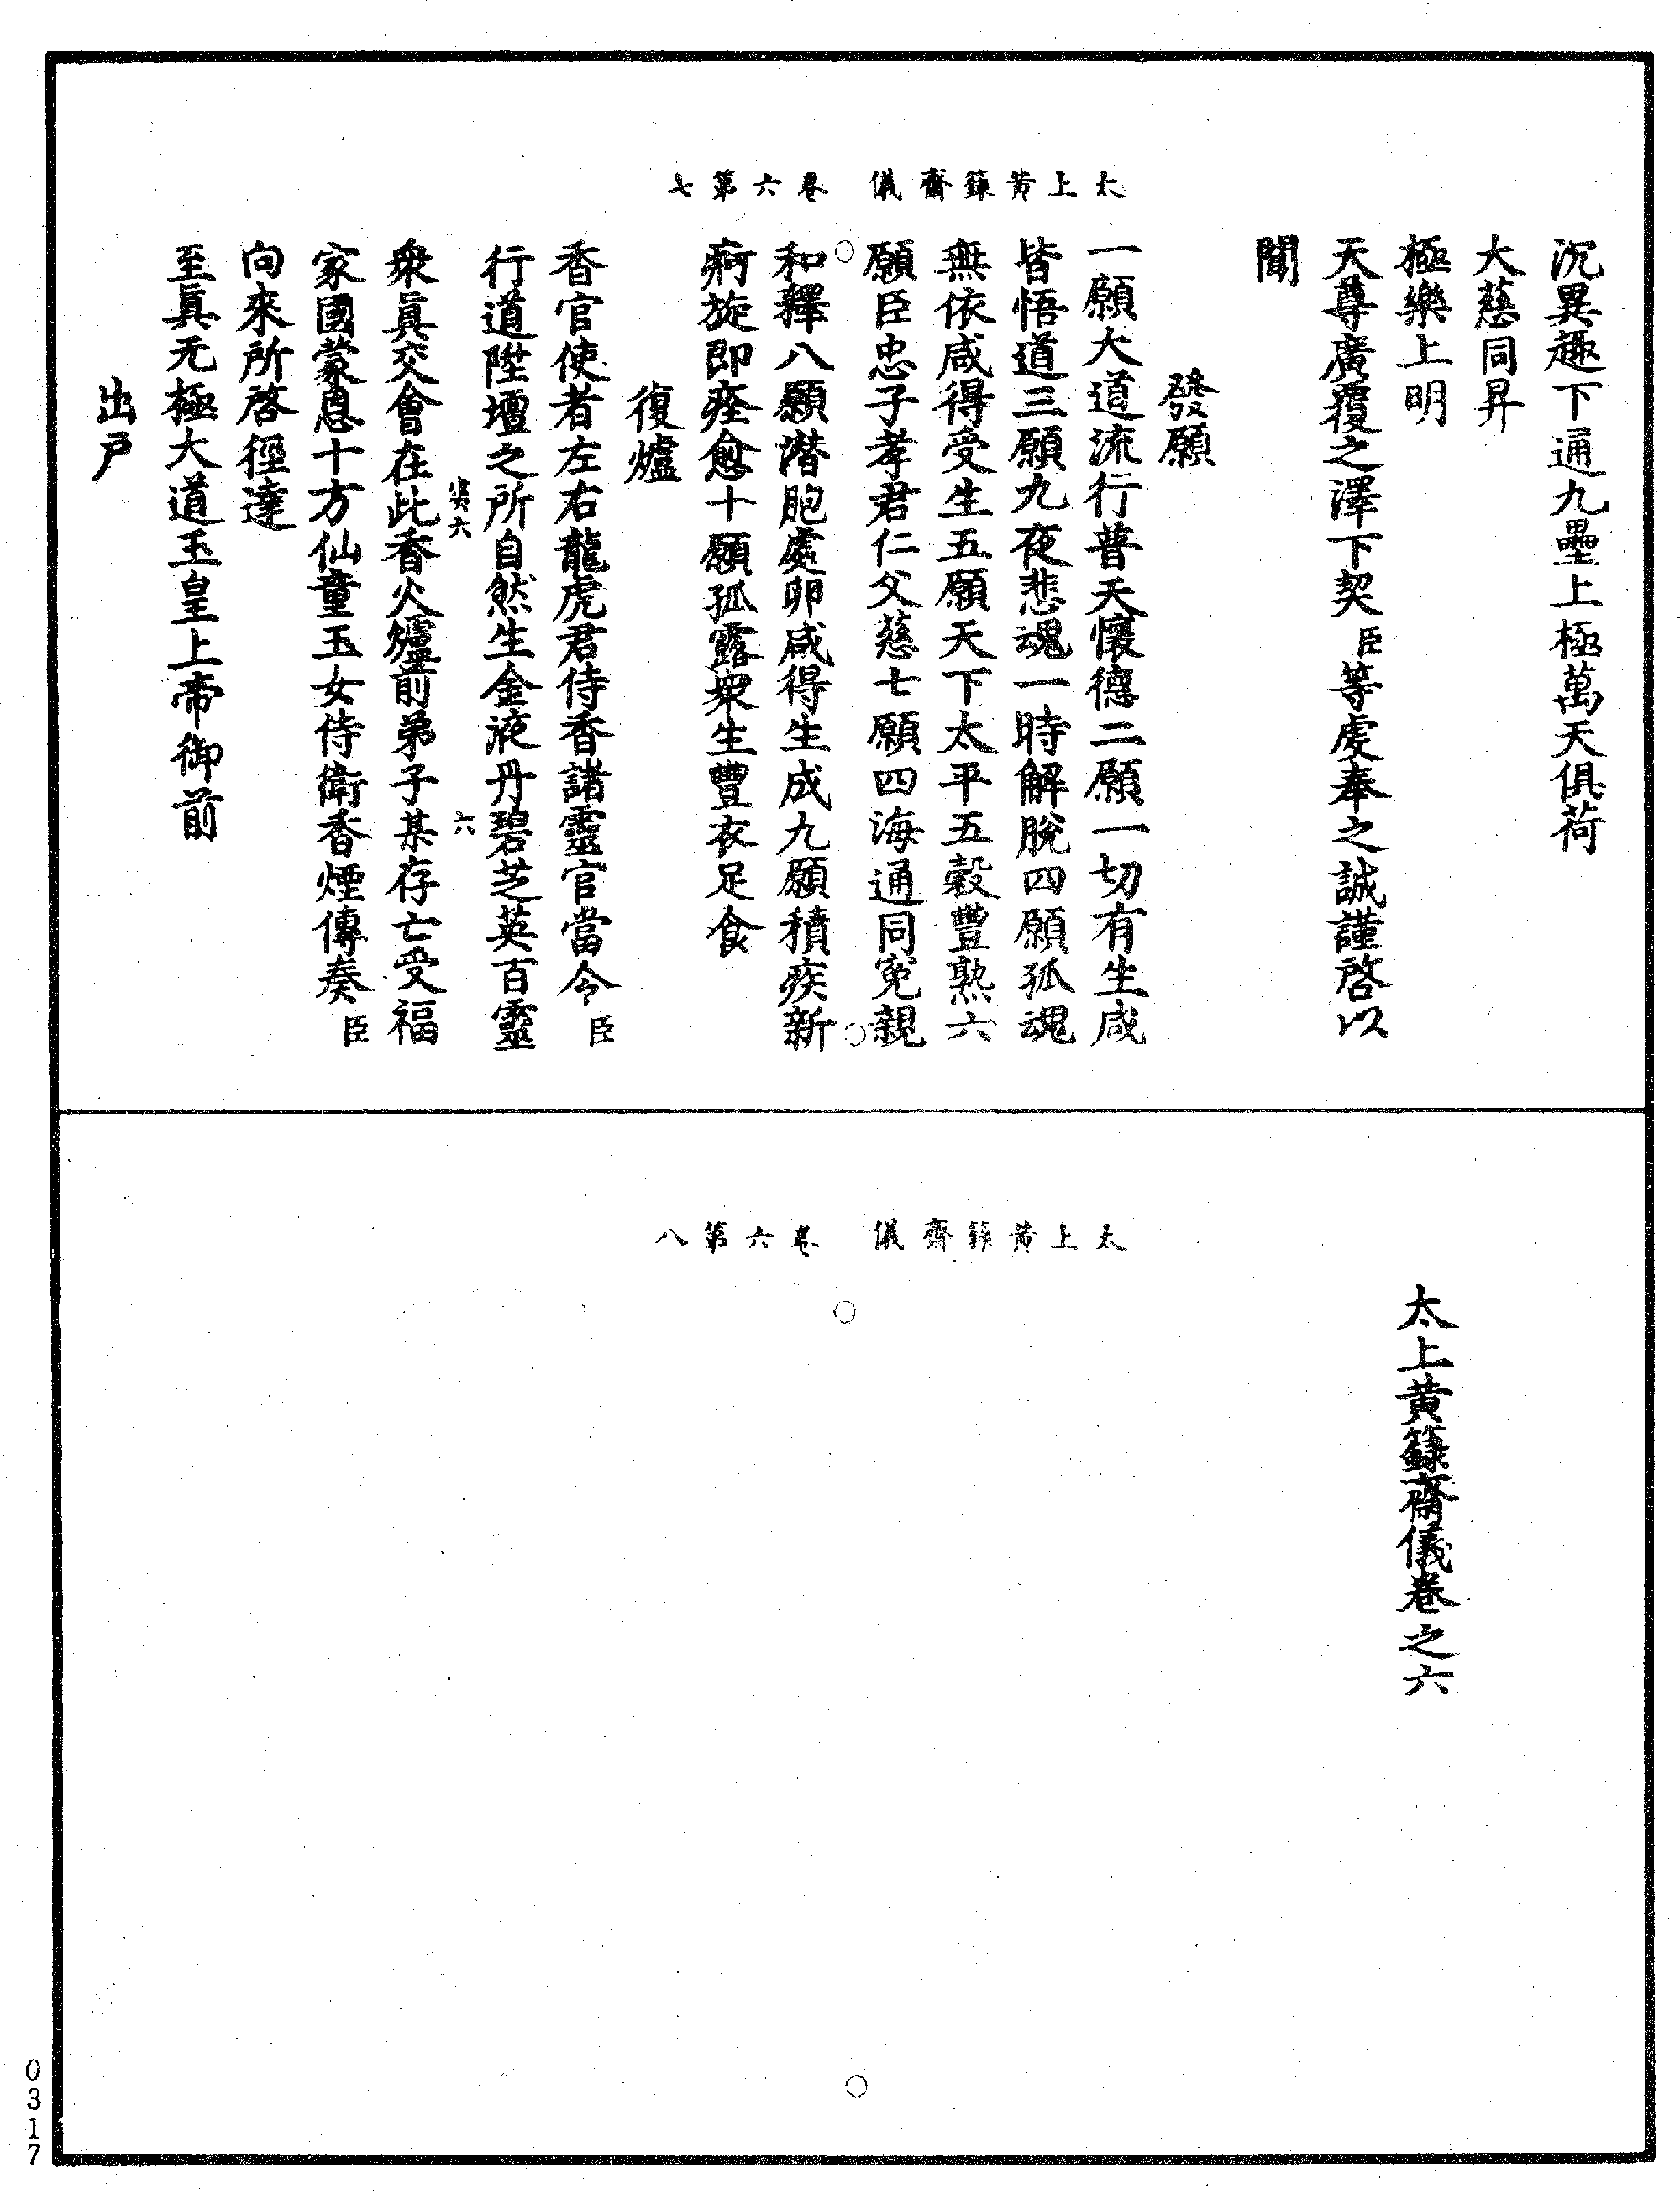 太上黃籙齋儀　卷六第七
沉異趣下通九壘上極萬天俱荷
大慈同昇
極樂上明
天尊廣覆之澤下契臣等虔奉之誠謹啓以
聞
發願
一願大道流行普天懷德二願一切有生咸
皆悟道三願九夜悲魂一時解脫四願孤魂
無依咸得受生五願天下太平五穀豐熟六
願臣忠子孝君仁父慈七願四海通同冤親
和釋八願潛胞處卵咸得生成九願積疾新
痾旋即痊愈十願孤露衆生豐衣足食
復爐
香官使者左右龍虎君侍香諸靈官當令臣
行道陞壇之所自然生金液丹碧芝英百靈
六
衆眞交會在此香火爐前弟子某存亡受福
家國蒙恩十方仙童玉女侍衛香煙傳奏臣
向來所啓徑達
至眞无極大道玉皇上帝御前
出戶
太上黃籙齋儀　卷六第八
太上黃籙齋儀卷之六
0317